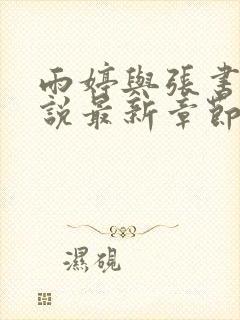 雨婷與張書
說最新章節
濕硯